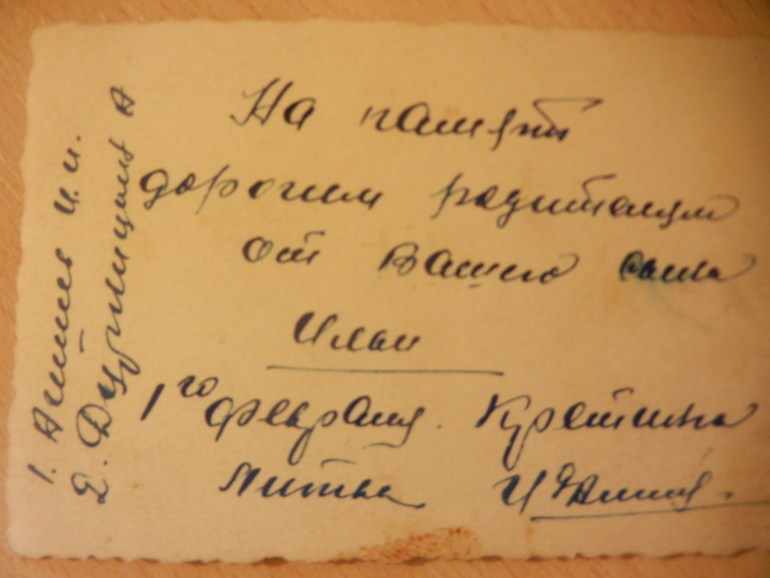 На память
дорогим родителям
от вашего сына
Ильи
1го февраля. Кретинга
Литва
1.
И.И.
2.